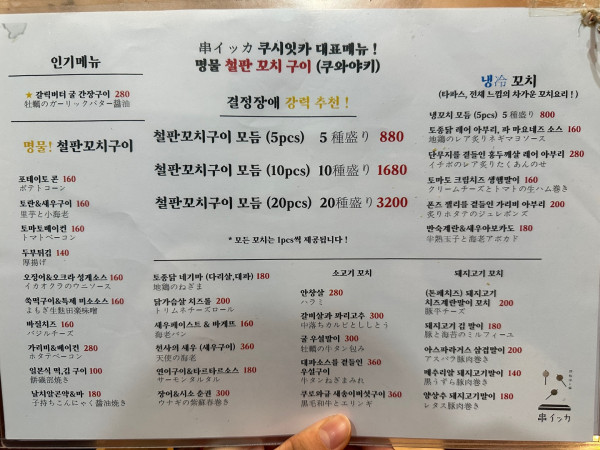 인기메뉴
★ 갈릭버터 굴 간장구이 280
牡蠣のガーリックバター醤油
명물! 철판꼬치구이
포테이토 콘 160
ポテトコーン
토란&새우구이 160
里芋と小海老
토마토베이컨 160
トマトベーコン
두부튀김 140
厚揚げ
오징어&오크라 성게소스 160
イカオクラのウニソース
쑥떡구이&특제 미소소스 160
よもぎ生麩田楽味噌
바질치즈 160
バジルチーズ
가리비&베이컨 280
ホタテベーコン
일본식 떡,김 구이 100
餅磯部焼き
날치알곤약&마 180
子持ちこんにゃく醤油焼き
串イッカ 쿠시잇카 대표메뉴 !
명물 철판 꼬치 구이 (쿠와야키)
결정장애 강력 추천 !
철판꼬치구이 모듬 (5pcs) 5 種盛り 880
철판꼬치구이 모듬 (10pcs) 10種盛り 1680
철판꼬치구이 모듬 (20pcs) 20種盛り 3200
* 모든 꼬치는 1pcs씩 제공됩니다 !
토종닭 네기마 (다리살,대파) 180
地鶏のねぎま
닭가슴살 치즈롤 200
トリムネチーズロール
새우페이스트 & 바게트 180
海老パン
천사의 새우 (새우구이) 360
天使の海老
연어구이&타르타르소스 180
サーモンタルタル
장어&시소 춘권 300
ウナギの紫蘇春巻き
소고기 꼬치
안창살 280
ハラミ
갈비살과 꽈리고추 300
中落ちカルビとししとう
굴 우설말이 300
牡蠣の牛タン包み
대파소스를 곁들인 360
우설구이
牛タンねぎまみれ
쿠로와규 새송이버섯구이 360
黒毛和牛とエリンギ
돼지고기 꼬치
(돈깨치즈) 돼지고기
치즈계란말이 꼬치 200
豚平チーズ
돼지고기 김 말이 180
豚と海苔のミルフィーユ
아스파라거스 삼겹말이 200
アスパラ豚肉巻き
메추리알 돼지고기말이 140
黒うずら豚肉巻き
양상추 돼지고기말이 180
レタス豚肉巻き
냉冷 꼬치
(타파스, 전채 느낌의 차가운 꼬치요리 ! )
냉꼬치 모듬 (5pcs) 5 種盛り 800
토종닭 레어 아부리, 파 마요네즈 소스 160
地鶏のレア炙りネギマヨソース
단무지를 곁들인 홍두깨살 레어 아부리 280
イチボのレア炙りたくあんのせ
토마토 크림치즈 생햄말이 160
クリームチーズとトマトの生ハム巻き
폰즈 젤리를 곁들인 가리비 아부리 200
炙りホタテのジュレポンズ
반숙계란&새우아보카도 180
半熟玉子と海老アボカド
串イッカ